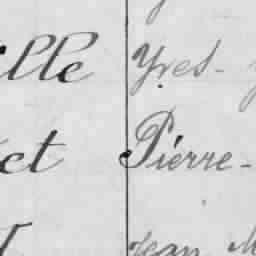 ille Yves-
et Pierre-
Jean M